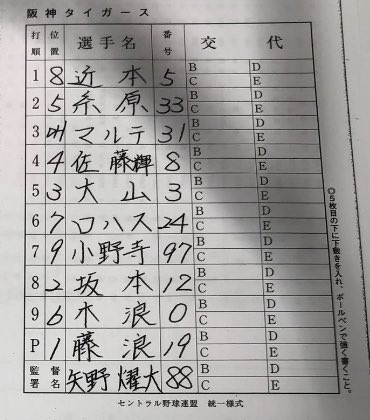 阪神タイガース
打順 位置 選手名 番号 交代
1 8 近本 5 B D C E
2 5 糸原 33 B D C E
3 DH マルテ 31 B D C E
4 4 佐藤輝 8 B D C E
5 3 大山 3 B D C E
6 7 ロハス 24 B D C E
7 9 小野寺 97 B D C E
8 2 坂本 12 B D C E
9 6 木浪 0 B D C E
P 1 藤浪 19 B D C E
監督署名 矢野燿大 88 B D C E
セントラル野球連盟 統一様式
◎5枚目の下に下敷きを入れ、ボールペンで強く書くこと。